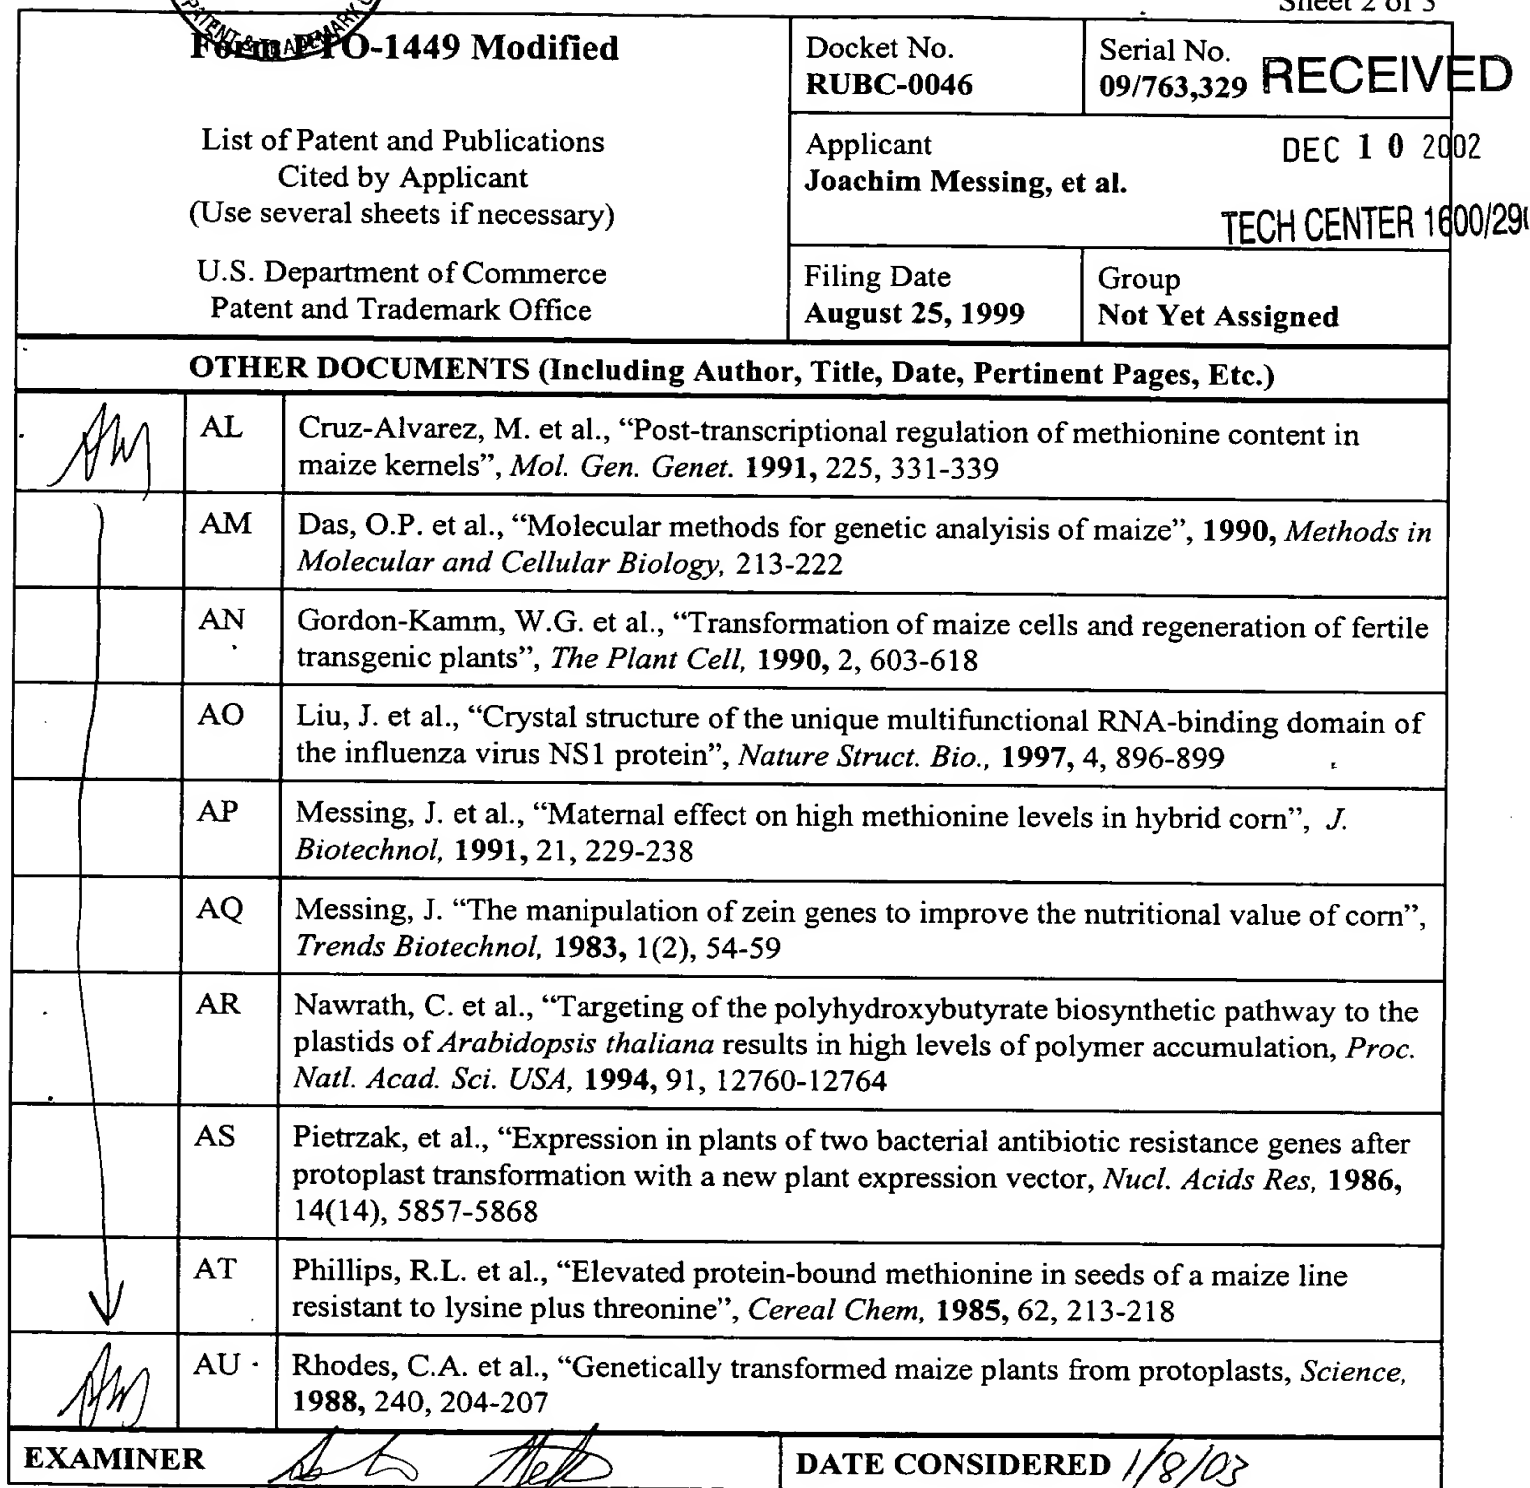 Sheet 2 of 3
PATENT & TRADEMARK
Form PTO-1449 Modified
List of Patent and Publications
Cited by Applicant
(Use several sheets if necessary)
U.S. Department of Commerce
Patent and Trademark Office
Docket No.
RUBC-0046
Serial No.
09/763,329
RECEIVED
Applicant
Joachim Messing, et al.
DEC 10 2002
TECH CENTER 1600/29
Filing Date
August 25, 1999
Group
Not Yet Assigned
OTHER DOCUMENTS (Including Author, Title, Date, Pertinent Pages, Etc.)
AL Cruz-Alvarez, M. et al., “Post-transcriptional regulation of methionine content in
maize kernels”, Mol. Gen. Genet. 1991, 225, 331-339
AM Das, O.P. et al., “Molecular methods for genetic analyisis of maize”, 1990, Methods in
Molecular and Cellular Biology, 213-222
AN Gordon-Kamm, W.G. et al., “Transformation of maize cells and regeneration of fertile
transgenic plants”, The Plant Cell, 1990, 2, 603-618
AO Liu, J. et al., “Crystal structure of the unique multifunctional RNA-binding domain of
the influenza virus NS1 protein”, Nature Struct. Bio., 1997, 4, 896-899
AP Messing, J. et al., “Maternal effect on high methionine levels in hybrid corn”, J.
Biotechnol, 1991, 21, 229-238
AQ Messing, J. “The manipulation of zein genes to improve the nutritional value of corn”,
Trends Biotechnol, 1983, 1(2), 54-59
AR Nawrath, C. et al., “Targeting of the polyhydroxybutyrate biosynthetic pathway to the
plastids of Arabidopsis thaliana results in high levels of polymer accumulation, Proc.
Natl. Acad. Sci. USA, 1994, 91, 12760-12764
AS Pietrzak, et al., “Expression in plants of two bacterial antibiotic resistance genes after
protoplast transformation with a new plant expression vector, Nucl. Acids Res, 1986,
14(14), 5857-5868
AT Phillips, R.L. et al., “Elevated protein-bound methionine in seeds of a maize line
resistant to lysine plus threonine”, Cereal Chem, 1985, 62, 213-218
AU Rhodes, C.A. et al., “Genetically transformed maize plants from protoplasts, Science,
1988, 240, 204-207
EXAMINER
DATE CONSIDERED 1/8/03